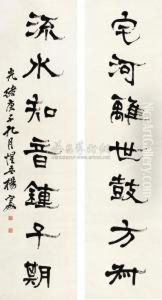 宅河離世鼓方叔
流水知音鍾子期
光緒庚子九月惺吾楊